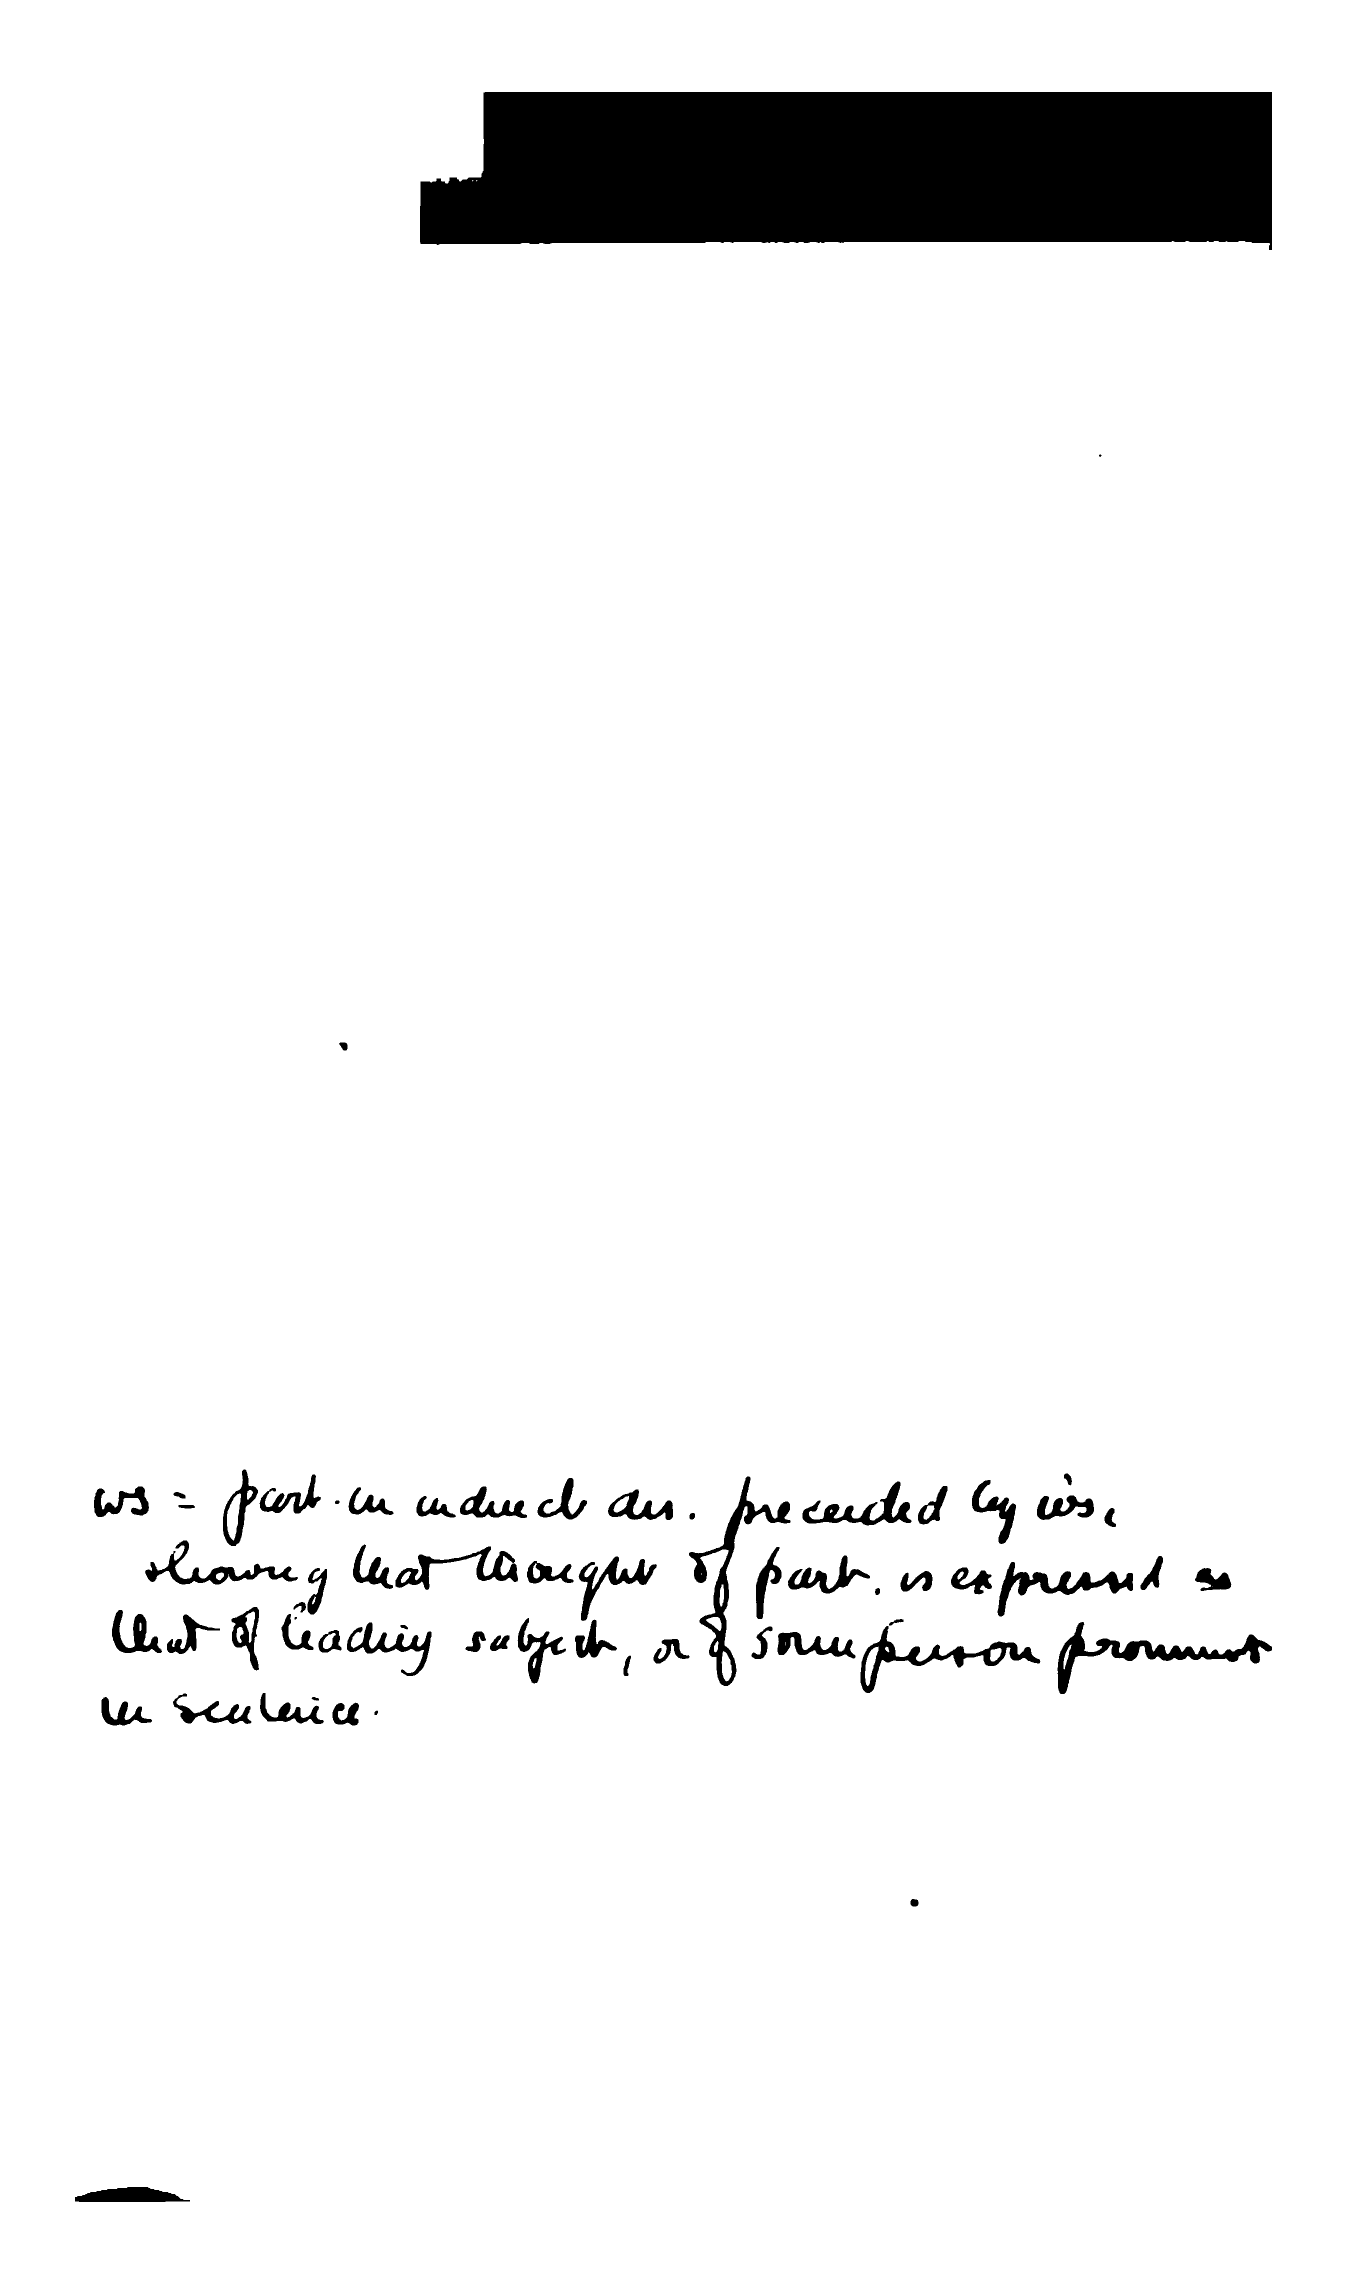 ωs = part. in indirect dis. preceded by ὡs,
showing that thought of part. is expressed as
that of leading subject, or of some person prominent
in sentence.